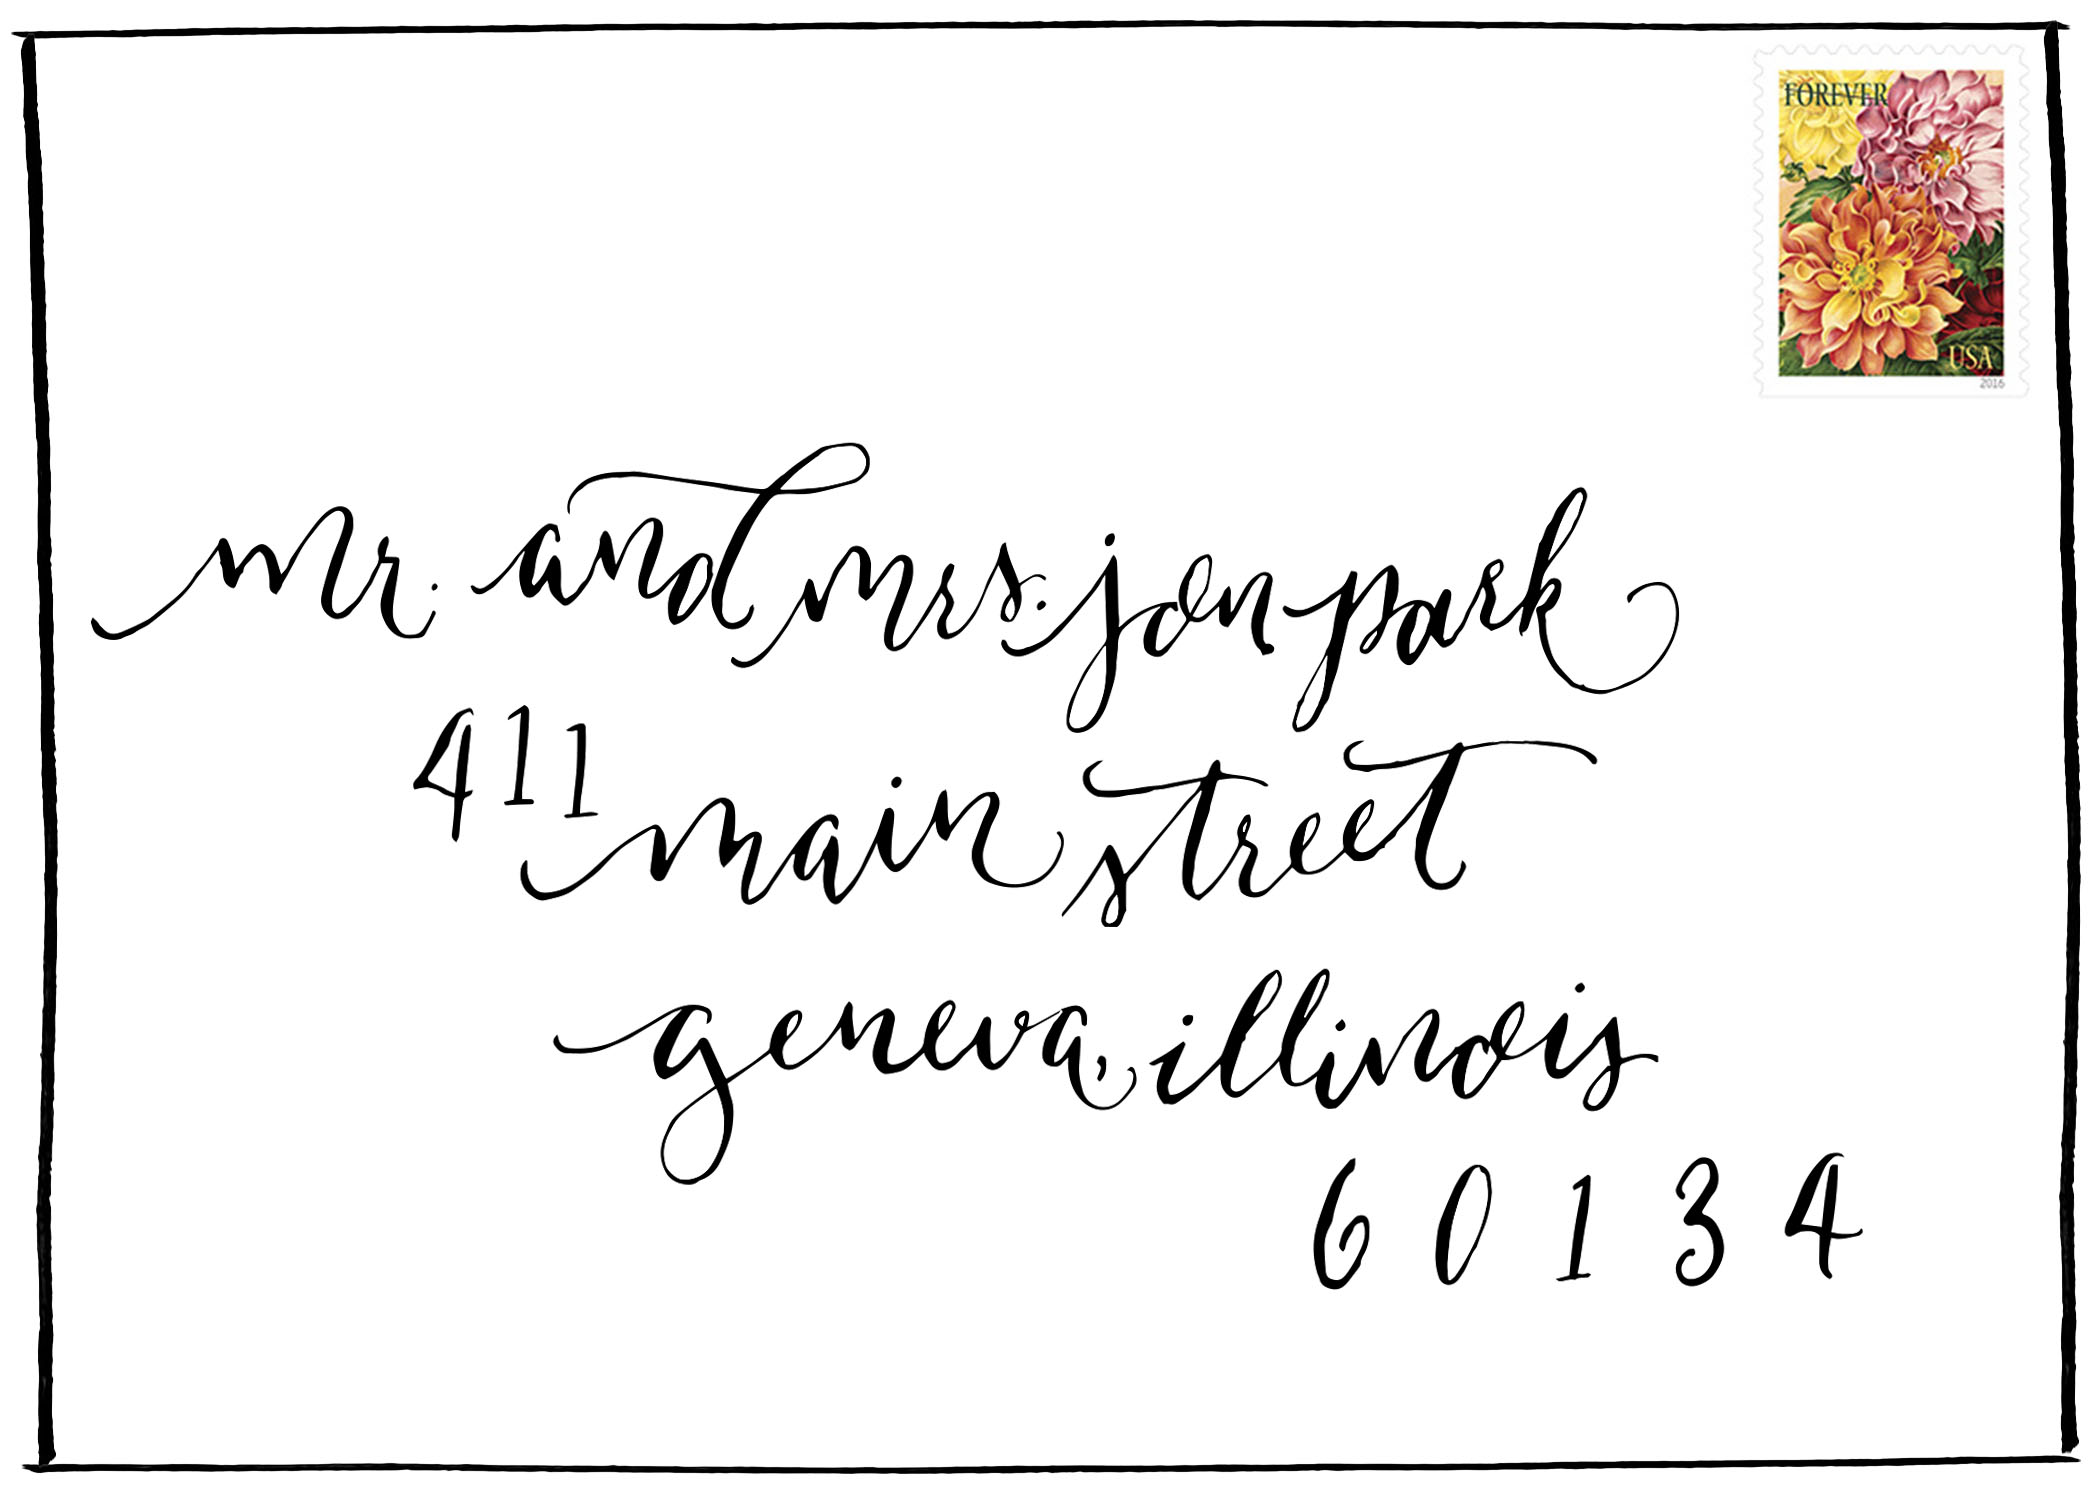 FOREVER
USA
2016
mr. and mrs. jon park
411 main street
geneva, illinois
60134